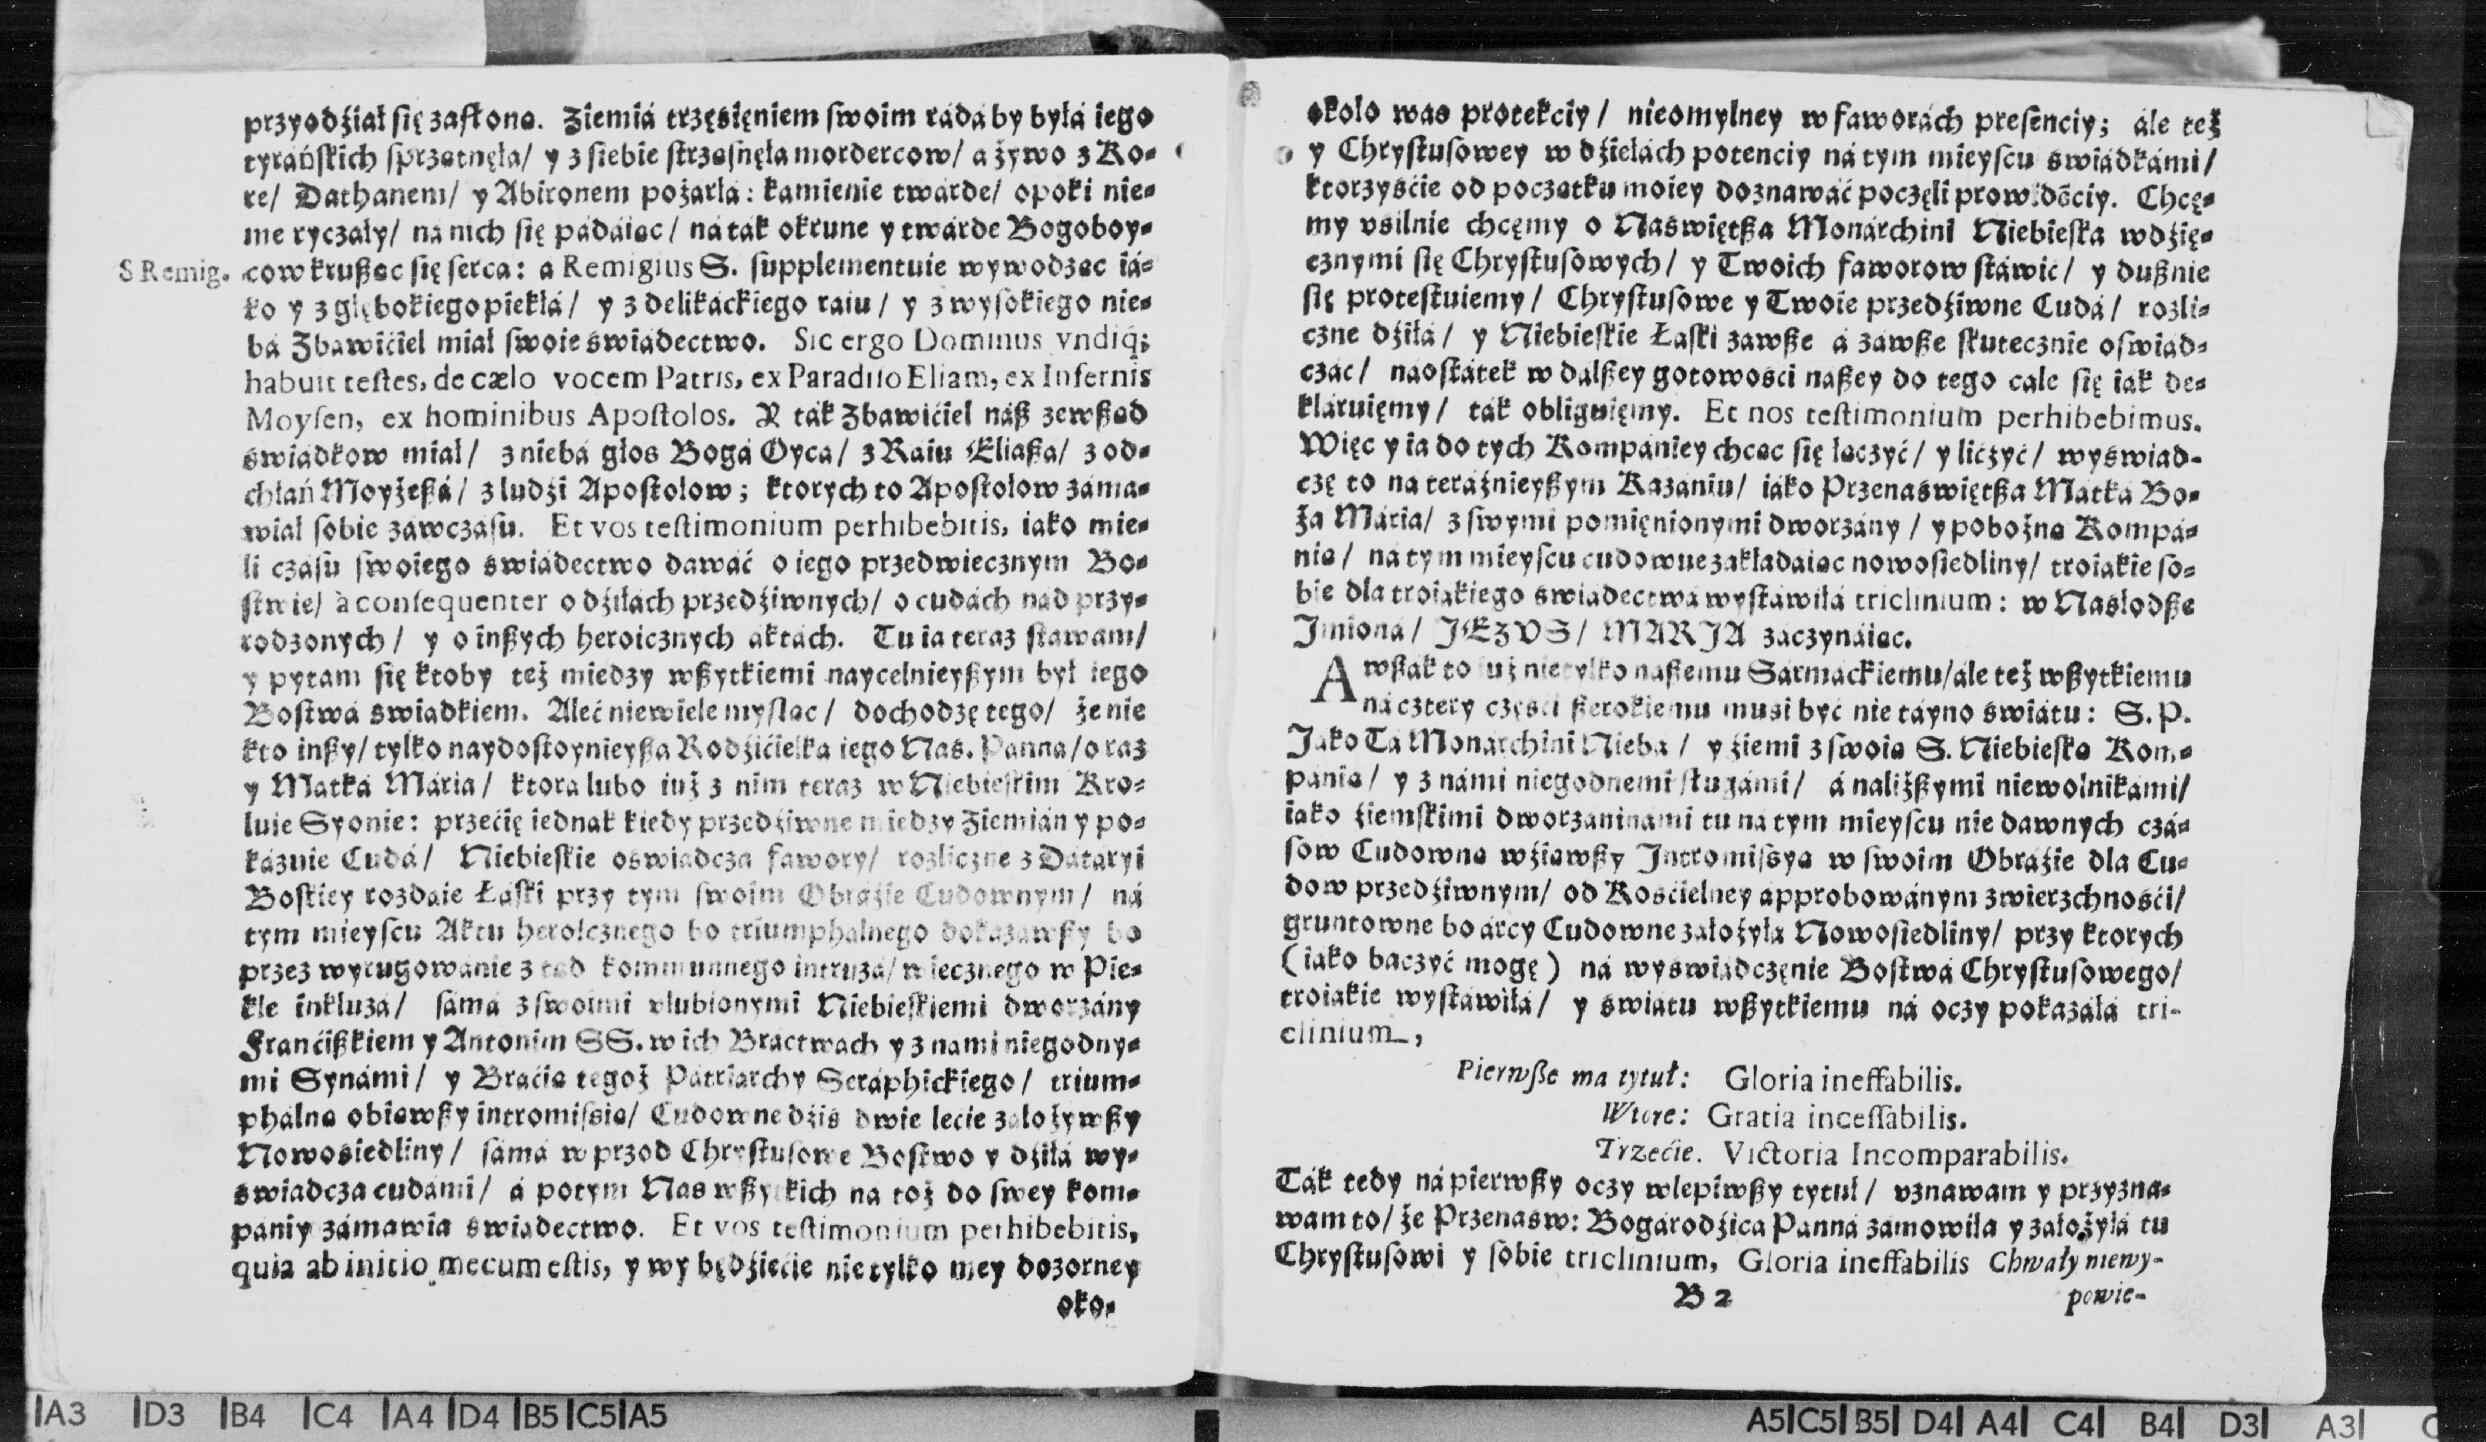 przyodźiał się zasłoną. Ziemiá trzęsięniem swoim rádá by byłá iego
tyráńskich sprzątnęłá/ y z siebie strząsnęłá mordercow/ á żywo z Ko-
re/ Dathanem/ y Abironem pożárłá: kámienie twárde/ opoki nie-
me ryczáły/ ná nich się pádáiąc/ ná ták okrune y twárde Bogoboy-
S Remig. cow krußąc się sercá: á Remigius S. supplementuie wywodząc iá-
ko y z głębokiego piekłá/ y z delikáckiego ráiu/ y z wysokiego nie-
bá Zbáwićiel miał swoie świádectwo. Sic ergo Dominus vndiq;
habuit testes, de cælo vocem Patris, ex Paradiso Eliam, ex Infernis
Moysen, ex hominibus Apostolos. Y ták Zbáwićiel náß zewßąd
świádkow miał/ z niebá głos Bogá Oycá/ z Ráiu Eliaßá/ z od-
chłáń Moyżeßá/ z ludźi Apostołow; ktorych to Apostołow zámá-
wiał sobie záwczásu. Et vos testimonium perhibebitis, iáko mie-
li czásu swoiego świádectwo dáwáć o iego przedwiecznym Bo-
stwie/ à consequenter o dźiłách przedźiwnych/ o cudách nád przy-
rodzonych/ y o inßych heroicznych áktách. Tu ia teraz stawam/
y pytam się ktoby też miedzy wßytkiemi naycelnieyßym był iego
Bostwá świádkiem. Aleć niewiele mysląc/ dochodzę tego/ że nie
kto inßy/ tylko naydostoynieyßa Rodźićielká iego Naś. Pánná/ oraz
y Mátká Mária/ ktora lubo iuż z nim teraz w Niebieskim Kro-
luie Syonie: przećię iednák kiedy przedźiwne miedzy Ziemiány po-
káznie Cudá/ Niebieskie oświádcza fawory/ rozliczne z Dátáryi
Boskiey rozdáie Łáski przy tym swoim Obráźie Cudownym/ ná
tym mieyscu Aktu heroicznego bo triumphalnego dokazawßy bo
przez wyrugowánie z tąd kommunnego intruzá/ wiecznego w Pie-
kle inkluzá/ sámá z swoimi vlubionymi Niebieskiemi dworzány
Fránćißkiem y Antonim SS. w ich Bráctwách y z námi niegodny-
mi Synámi/ y Bráćią tegoż Pátriárchy Seráphickiego/ trium-
phálną obiąwßy intromissią/ Cudowne dźiś dwie lecie záłożywßy
Nowosiedliny/ sámá w przod Chrystusowe Bostwo y dźiłá wy-
świadcza cudámi/ á potym Nas wßytkich ná toż do swey kom-
pániy zámawia świádectwo. Et vos testimonium perhibebitis,
quia ab initio mecum estis, y wy będźiećie nie tylko mey dozorney
oko-
około was protekciy/ nieomylney w faworách presenciy; ále też
y Chrystusowey w dźiełách potenciy ná tym mieyscu świádkámi/
ktorzyśćie od początku moiey doznawáć poczęli prowidẽciy. Chcę-
my vsilnie chcęmy o Naświętßa Monárchini Niebieska wdźię-
cznymi się Chrystusowych/ y Twoich faworow stáwić/ y dußnie
się protestuiemy/ Chrystusowe y Twoie przedźiwne Cudá/ rozli-
czne dźiłá/ y Niebieskie Łáski záwße á záwße skutecznie oświad-
czáć/ náostátek w dálßey gotowości náßey do tego cále się iák de-
kláruięmy/ ták obliguięmy. Et nos testimonium perhibebimus.
Więc y ia do tych Kompániey chcąc się łączyć/ y liczyć/ wyświad-
czę to ná teráźnieyßym Kazániu/ iáko Przenaświętßa Mátká Bo-
ża Mária/ z swymi pomięnionymi dworzány/ y pobożną Kompá-
nią/ ná tym mieyscu cudowne zákładáiąc nowosiedliny/ troiákie so-
bie dla troiákiego świádectwá wystáwiłá triclinium: w Nasłodße
Jmioná/ JEZVS/ MARJA záczynáiąc.
Awßák to iuż nie tylko náßemu Sarmáckiemu/ále też wßytkiemu
ná cztery części ßerokiemu musi być nie táyno świátu: S. P.
Jáko Tá Monárchini Niebá/ y źiemi z swoią S. Niebieską Kom-
pánią/ y z námi niegodnemi sługámi/ á naliżßymi niewolnikámi/
iáko źiemskimi dworzáninámi tu ná tym mieyscu nie dawnych czá-
sow Cudowną wźiąwßy Intromissyą w swoim Obráźie dla Cu-
dow przedźiwnym/ od Kościelney ápprobowánym zwierzchności/
gruntowne bo árcy Cudowne záłożyłá Nowosiedliny/ przy ktorych
(iáko baczyć mogę) ná wyświádczęnie Bostwá Chrystusowego/
troiákie wystáwiłá/ y świátu wßytkiemu ná oczy pokazáłá tri-
clinium,
Pierwße ma tytuł: Gloria ineffabilis.
Wtore: Gratia incessabilis.
Trzećie. Victoria Incomparabilis.
Ták tedy ná pierwßy oczy wlepiwßy tytuł/ vznawam y przyzna-
wam to/ że Przenaśw: Bogárodźicá Pánná zámowiłá y záłożyłá tu
Chrystusowi y sobie triclinium, Gloria ineffabilis Chwały niewy-
B 2 powie-
A3 D3 B4 C4 A4 D4 B5 C5 A5
A5 C5 B5 D4 A4 C4 B4 D3 A3